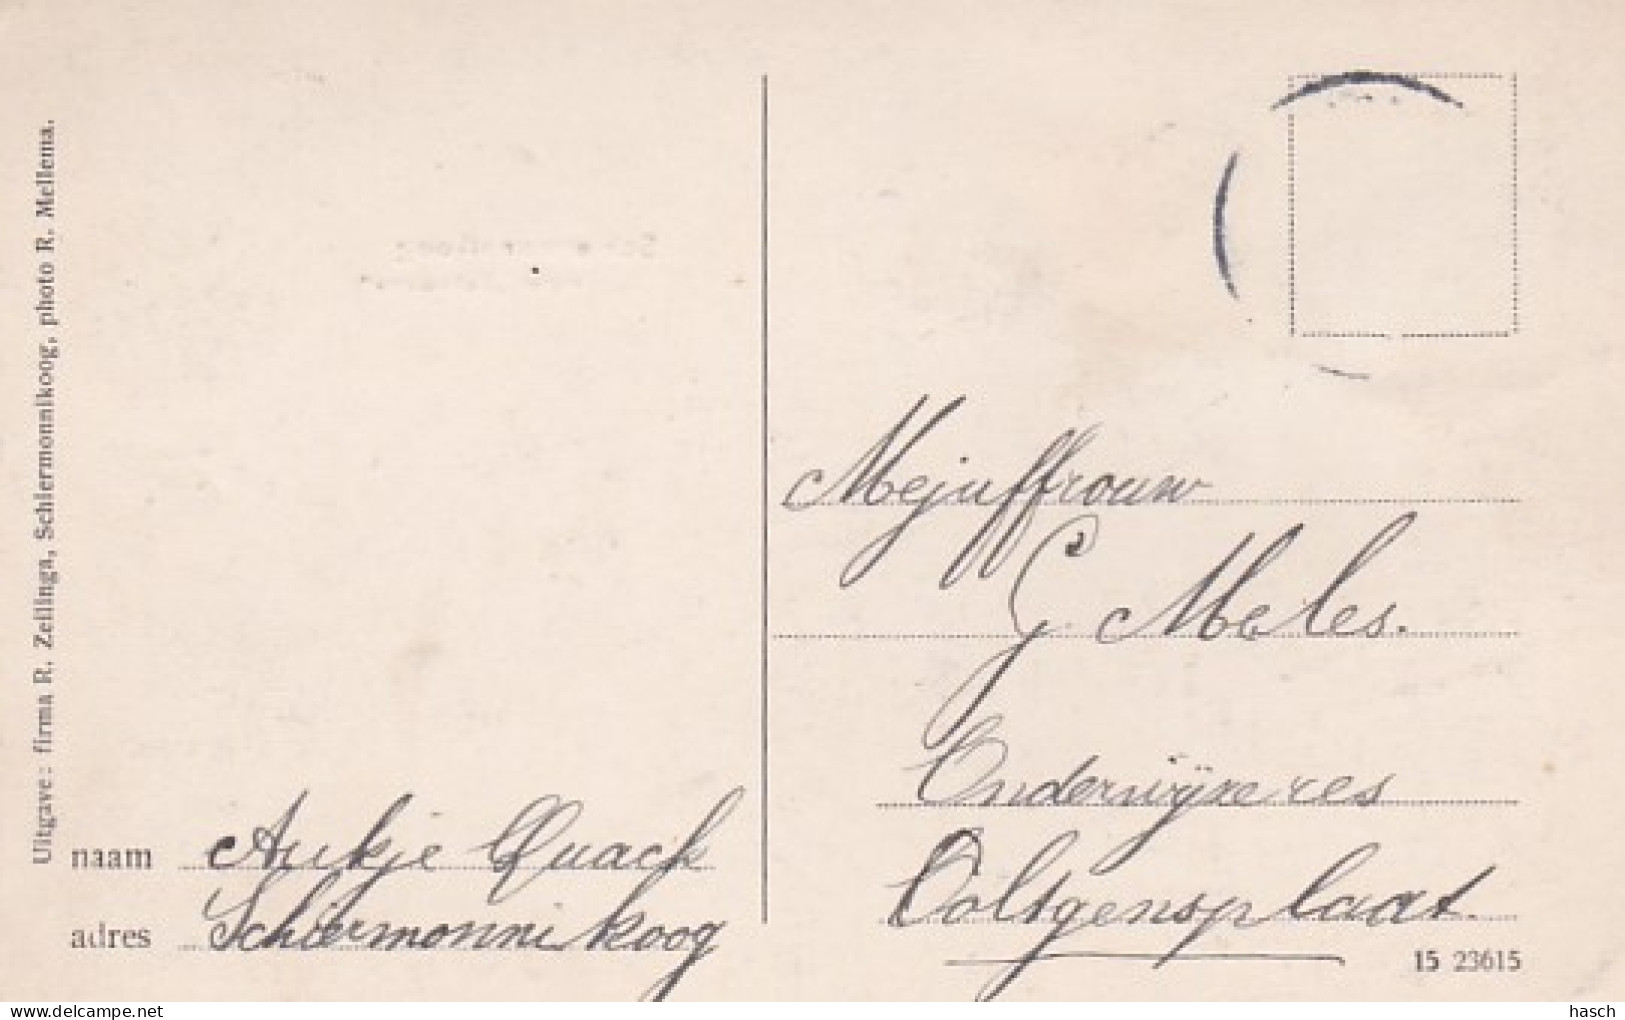 Uitgave: firma R. Zeilinga, Schiermonnikoog, photo R. Mellema.
Mejuffrouw
G Males.
Onderwijzeres
Ooltgensplaat.
naam Aukje Quack
adres Schiermonnikoog
15 23615
delcampe.net
hasch